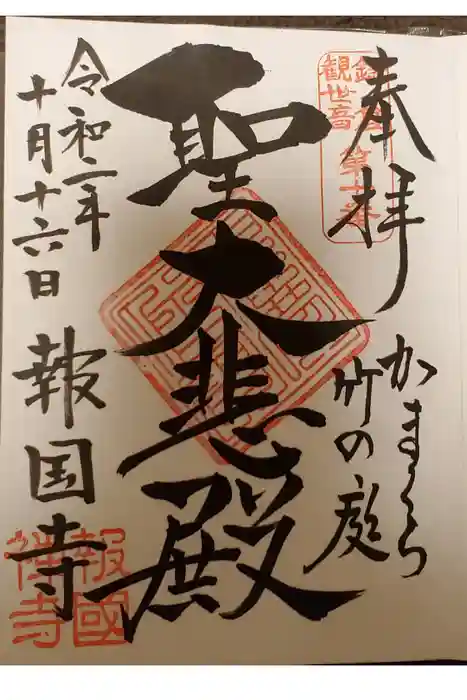 奉拝
鎌倉
観世音
第十番
かまくら
竹の庭
聖大悲殿
令和二年
十月十六日
報国寺
報國
禅寺